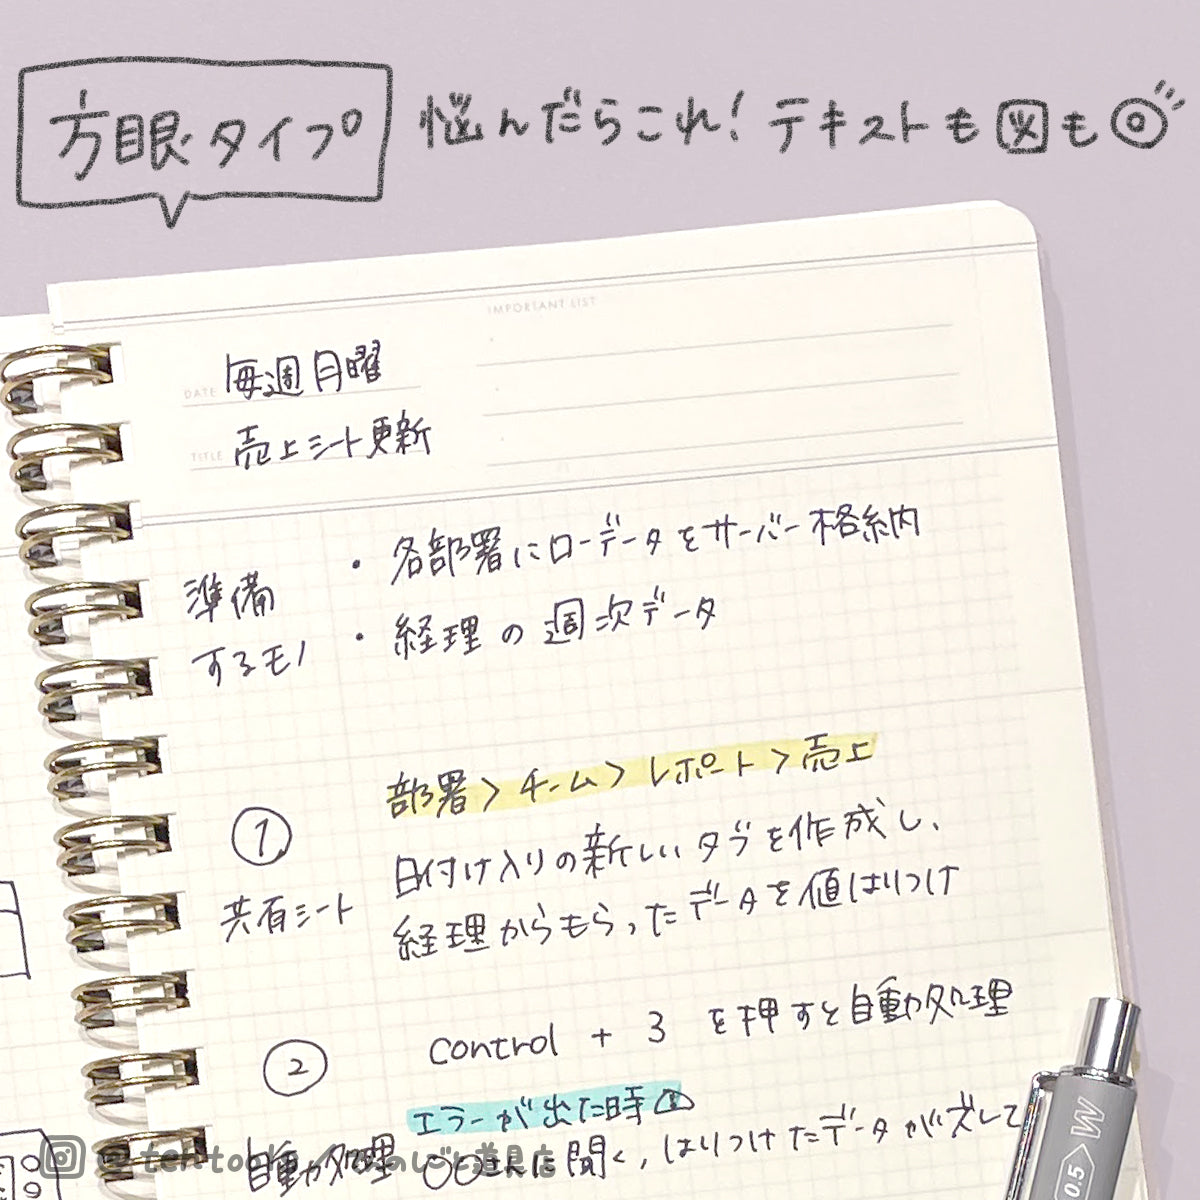 方眼タイプ 悩んだらこれ！テキストも図も◎
IMPORTANT LIST
DATE 毎週月曜
TITLE 売上シート更新
準備するモノ
・各部署にローデータをサーバー格納
・経理の週次データ
① 共有シート
部署＞チーム＞レポート＞売上
日付け入りの新しいタブを作成し、
経理からもらったデータを値はりつけ
② 自動処理
control + 3 を押すと自動処理
エラーが出た時①
〇〇に聞く，はりつけたデータがズレて
0.5 W